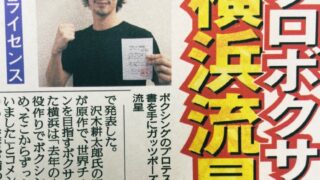 プロボクサ
横浜流星
ライセンス
ボクシングのプロテス
書を手にガッツポーズ
流星
で発表した。
沢木耕太郎氏の
が原作で、世界チ
ンを目指すボクサ
た横浜は「去年の
役作りでボクシン
め、そこからずっ
いました」とコメン